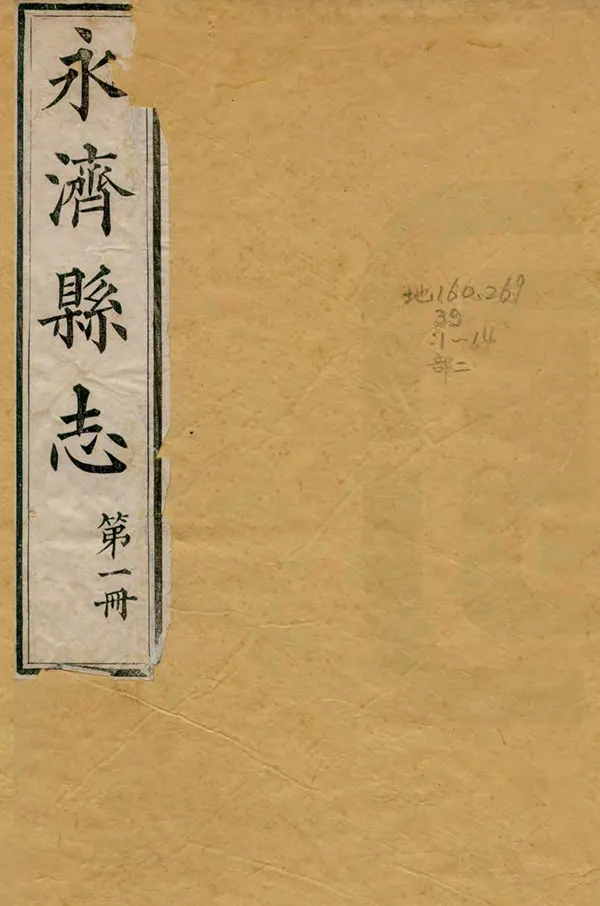 永濟縣志
第一冊
地160.269
39
:1~14
部二